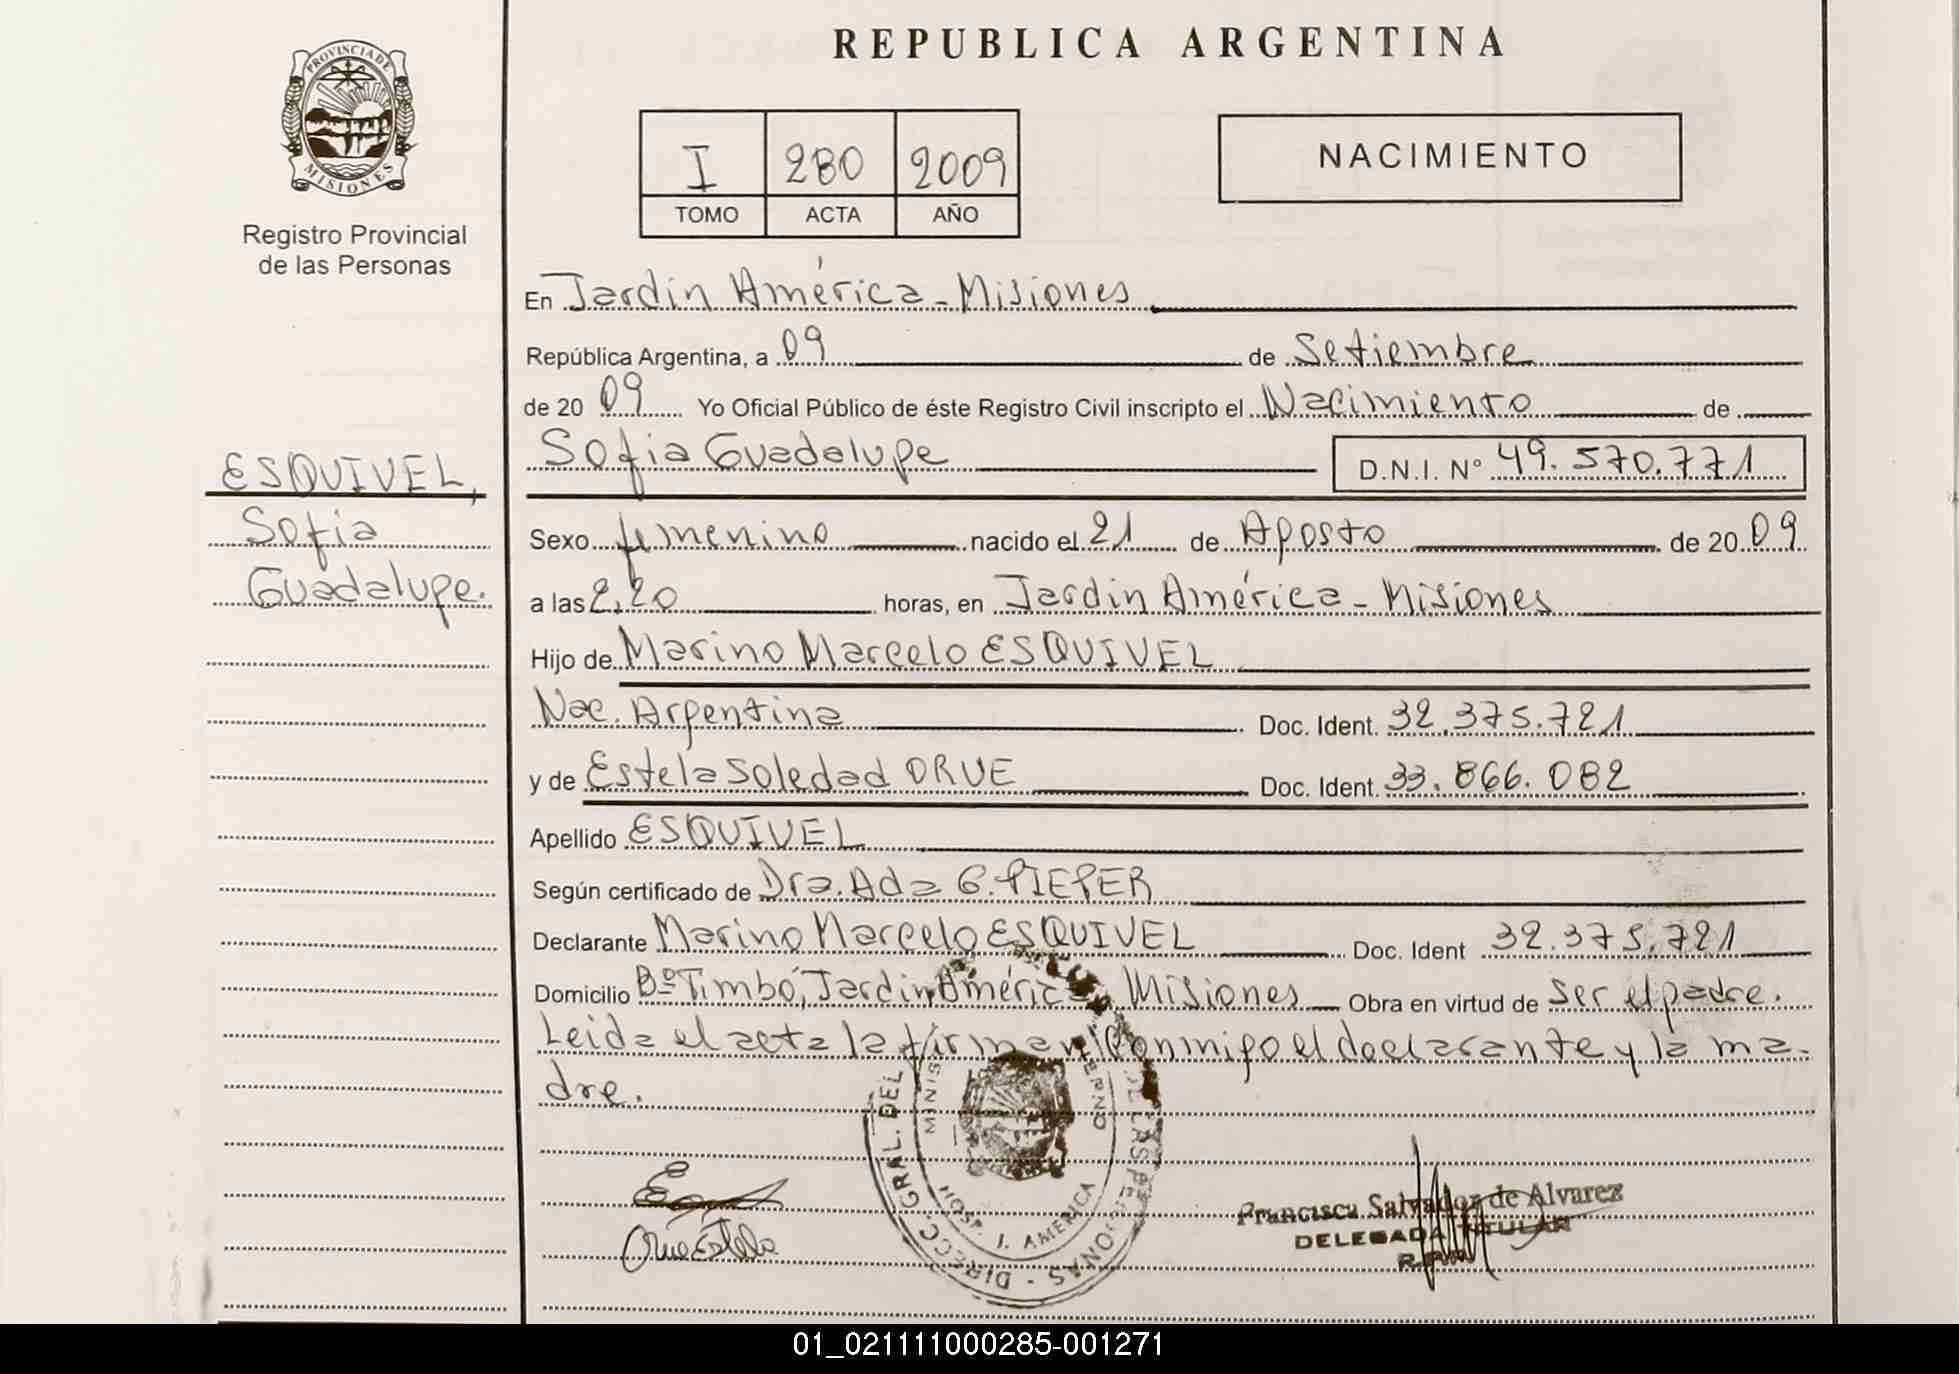 PROVINCIA DE
MISIONES
Registro Provincial
de las Personas
ESQUIVEL,
Sofia
Guadalupe.
REPUBLICA ARGENTINA
I 280 2009
TOMO ACTA AÑO
NACIMIENTO
En Jardin América - Misiones
República Argentina, a 09 de Setiembre
de 20 09 Yo Oficial Público de éste Registro Civil inscripto el Nacimiento de
Sofia Guadalupe D.N.I. N° 49.570.771
Sexo femenino nacido el 21 de Agosto de 20 09
a las 2,20 horas, en Jardin América - Misiones
Hijo de Marino Marcelo ESQUIVEL
Nac. Argentina Doc. Ident. 32.375.721
y de Estela Soledad ORUE Doc. Ident. 33.866.082
Apellido ESQUIVEL
Según certificado de Dra. Ada G. PIEPER
Declarante Marino Marcelo ESQUIVEL Doc. Ident 32.375.721
Domicilio Bº Timbó, Jardin América Misiones Obra en virtud de ser el padre.
Leida el acta la firman conmigo el declarante y la ma-
dre.
DIRECC. GRAL. DEL LAS PERSONAS
HOSP. J. AMERICA
Orue Estela
Francisca Salvador de Alvarez
DELEGADA TITULAR
01_021111000285-001271